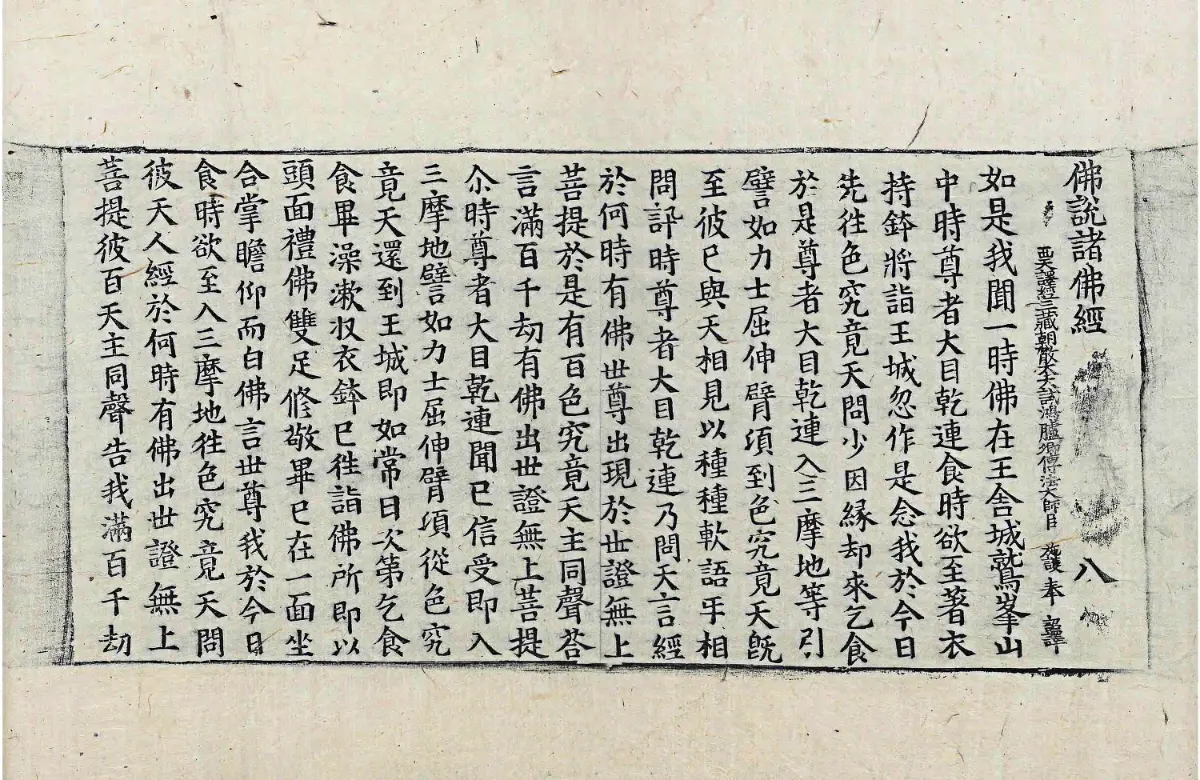 佛說諸佛經 八
西天譯經三藏朝散大夫試鴻臚卿傳法大師臣 施護 奉 詔譯
如是我聞一時佛在王舍城鷲峯山
中時尊者大目乾連食時欲至著衣
持鉢將詣王城忽作是念我於今日
先徃色究竟天問少因緣却來乞食
於是尊者大目乾連入三摩地等引
譬如力士屈伸臂項到色究竟天旣
至彼已與天相見以種種軟語乎相
問訊時尊者大目乾連乃問天言經
於何時有佛世尊出現於世證無上
菩提於是有百色究竟天主同聲荅
言滿百千劫有佛出世證無上菩提
尒時尊者大目乾連聞已信受即入
三摩地譬如力士屈伸臂頃從色究
竟天還到王城即如常日次第乞食
食畢澡漱収衣鉢已徃詣佛所即以
頭面禮佛雙足修敬畢已在一面坐
合掌瞻仰而白佛言世尊我於今日
食時欲至入三摩地徃色究竟天問
彼天人經於何時有佛出世證無上
菩提彼百天主同聲告我滿百千劫